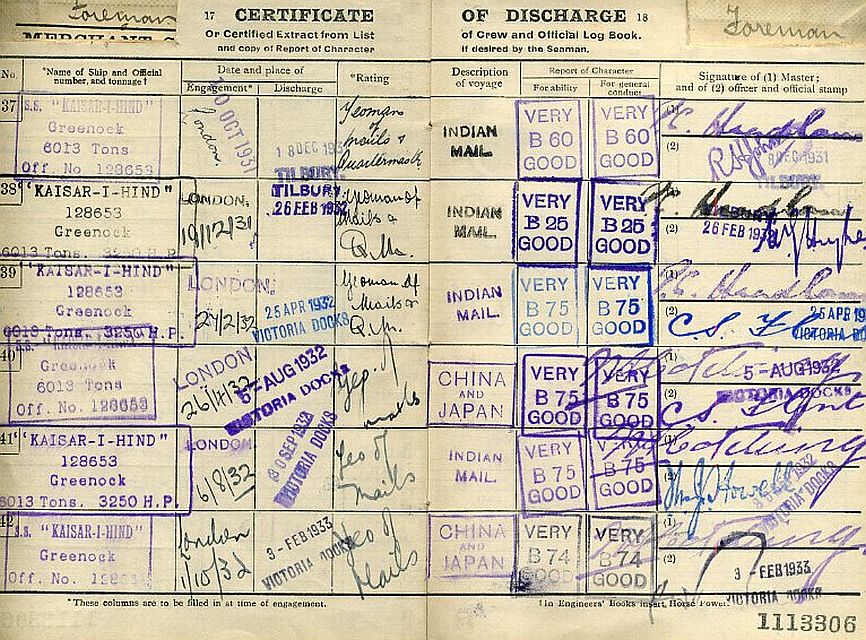 Foreman
17 CERTIFICATE OF DISCHARGE 18
Foreman
Or Certified Extract from List of Crew and Official Log Book.
and copy of Report of Character if desired by the Seaman.
No.
*Name of Ship and Official number, and tonnage†
Date and place of
Engagement* Discharge
*Rating
Description of voyage
Report of Character
For ability For general conduct
Signature of (1) Master; and of (2) officer and official stamp
37
S.S. "KAISAR-I-HIND"
Greenock
6013 Tons
Off. No. 128653
OCT 1931
London.
18 DEC 1931
TILBURY
Yeoman
of
mails &
Quartermaster
INDIAN
MAIL.
VERY
B 60
GOOD
VERY
B 60
GOOD
(2)
DEC 1931
TILBURY
38
"KAISAR-I-HIND"
128653
Greenock
6013 Tons. 3250 H.P.
LONDON.
19/12/31
TILBURY
26 FEB 1932
Yeoman of
Mails &
Q.M.
INDIAN
MAIL.
VERY
B 25
GOOD
VERY
B 25
GOOD
(2)
26 FEB 1932
39
"KAISAR-I-HIND"
128653
Greenock
6013 Tons. 3250 H.P.
LONDON.
27/2/32
25 APR 1932
VICTORIA DOCKS
Yeoman of
Mails &
Q.M.
INDIAN
MAIL.
VERY
B 75
GOOD
VERY
B 75
GOOD
(1)
(2)
25 APR 19
VICTORIA DO
40
S.S.
Greenock
6013 Tons
Off. No. 128653
LONDON
5-AUG 1932
VICTORIA DOCKS
Yeo. of
mails
CHINA
AND
JAPAN
VERY
B 75
GOOD
VERY
B 75
GOOD
(1)
(2)
5-AUG 1932
C.S. Flint
41
"KAISAR-I-HIND"
128653
Greenock
6013 Tons. 3250 H.P.
LONDON
6/8/32
30 SEP 1932
VICTORIA DOCKS
Yeo of
Mails
INDIAN
MAIL.
VERY
B 75
GOOD
VERY
B 75
GOOD
(1)
(2)
VICTORIA DOCKS
42
S.S. "KAISAR-I-HIND"
Greenock
Off. No.
London
1/10/32
3-FEB 1933
VICTORIA DOCKS
Yeo of
Mails
CHINA
AND
JAPAN
VERY
B 74
GOOD
VERY
B 74
GOOD
(1)
(2)
3-FEB 1933
VICTORIA DOCKS
*These columns are to be filled in at time of engagement.
†In Engineers' Books insert Horse Power.
1113306